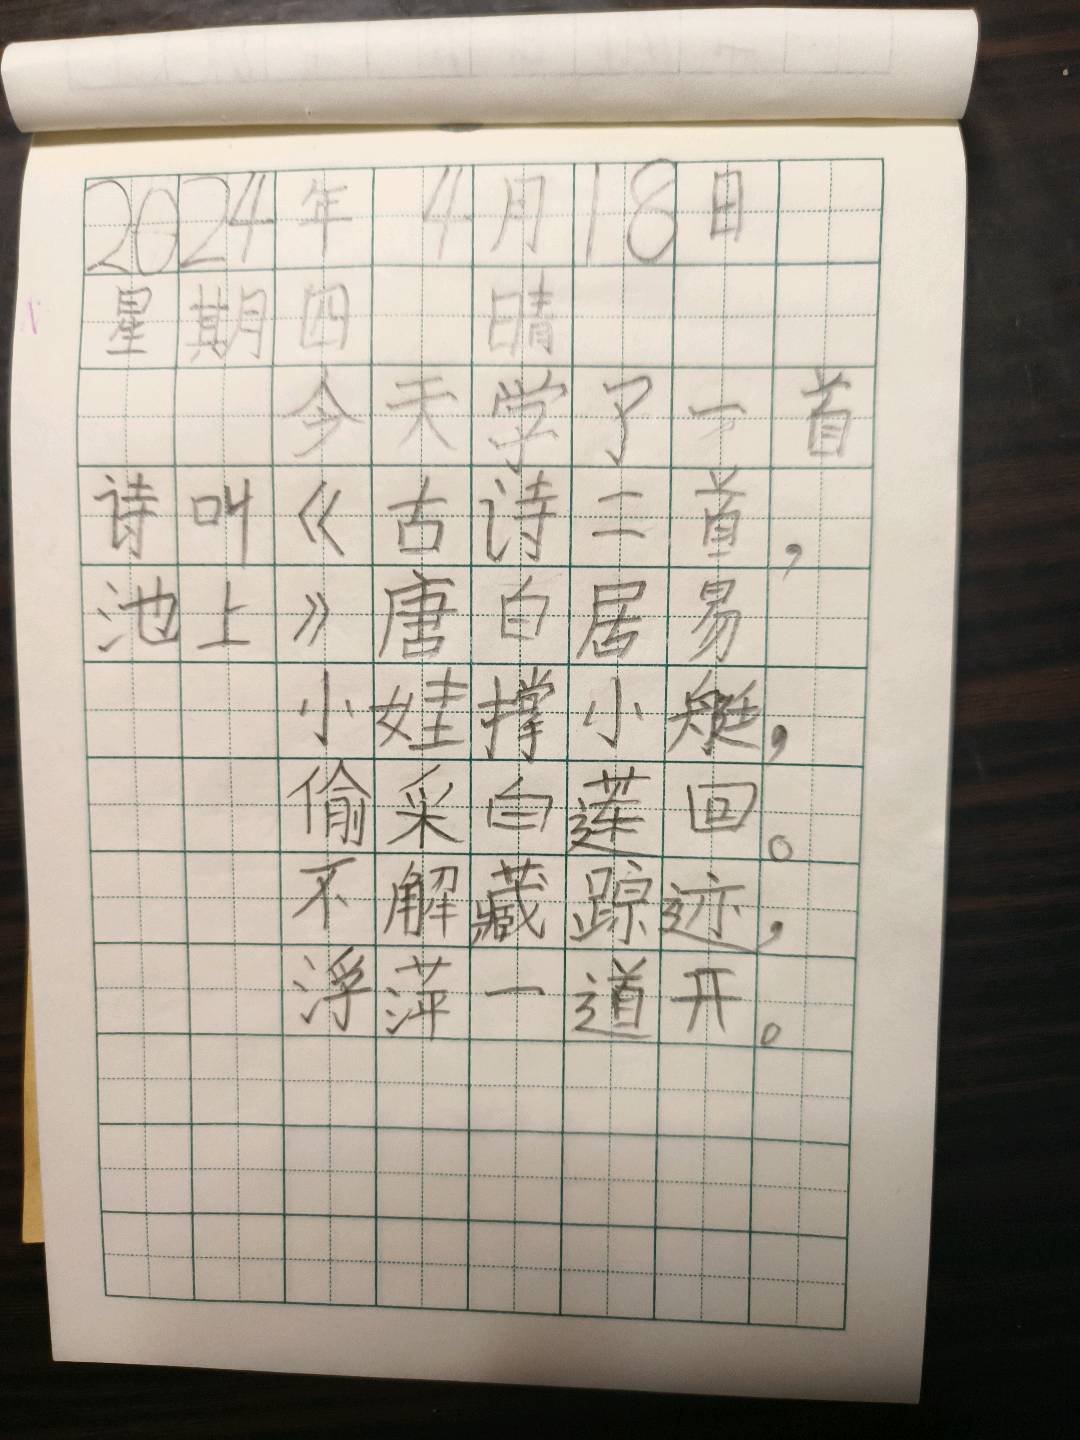 2024年 4月18日
星期四 晴
今天学了一首
诗叫《古诗二首,
池上》唐白居易
小娃撑小艇,
偷采白莲回。
不解藏踪迹,
浮萍一道开。